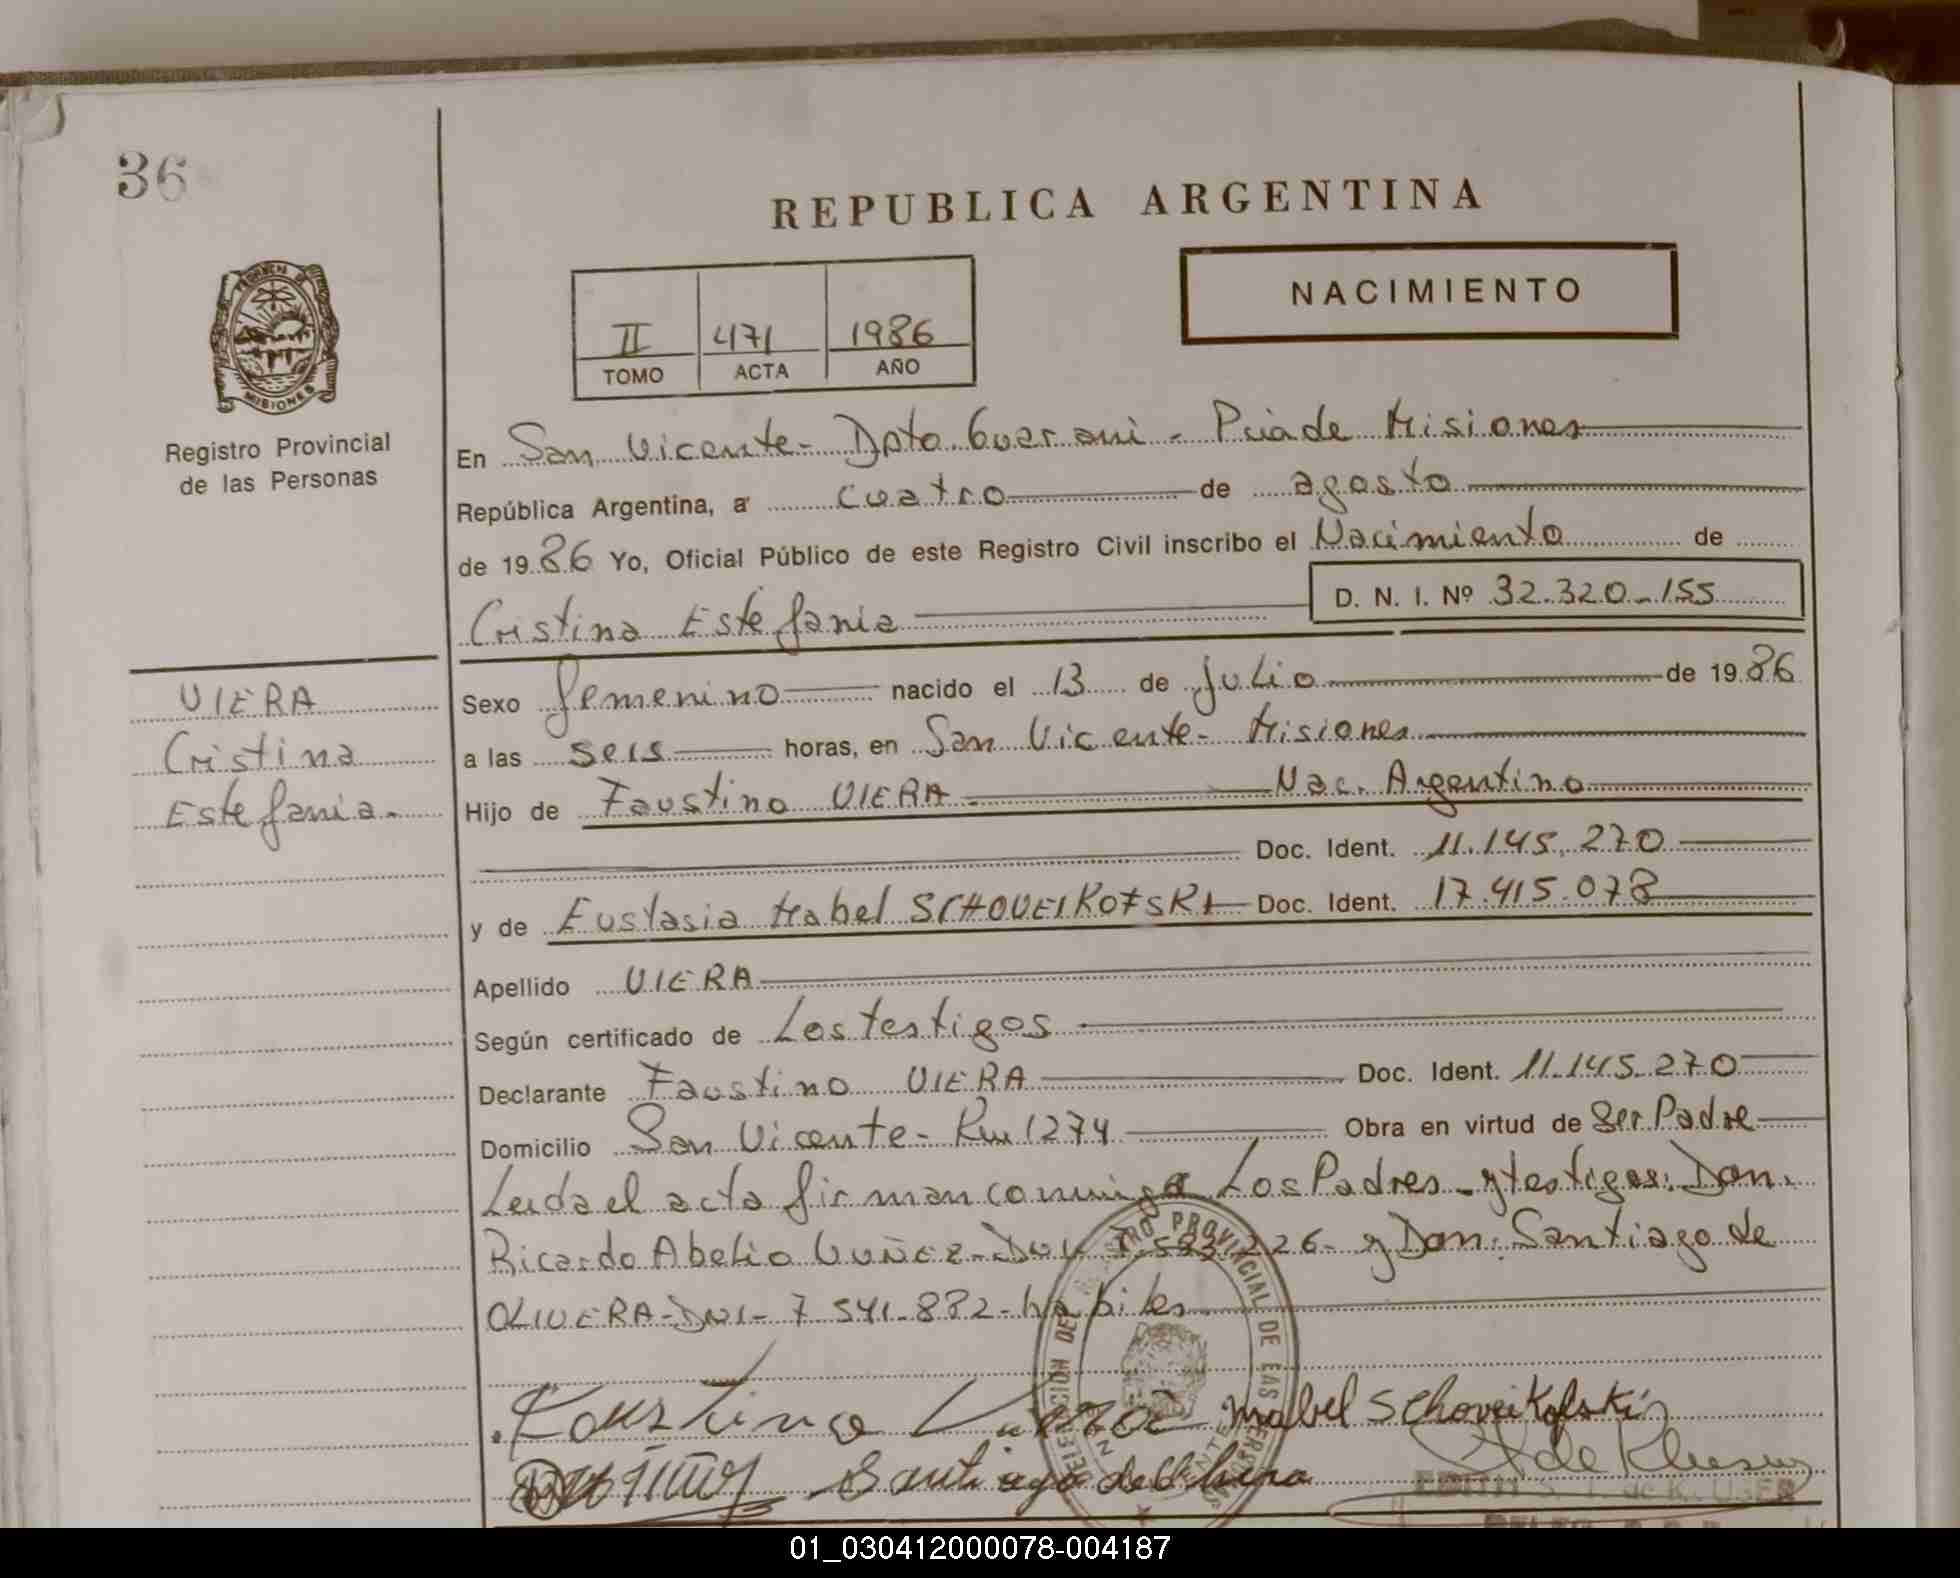 36
REPUBLICA ARGENTINA
NACIMIENTO
II 471 1986
TOMO ACTA AÑO
PROVINCIA DE
MISIONES
Registro Provincial
de las Personas
En San Vicente - Dpto Guarani - Pcia de Misiones
República Argentina, a cuatro de agosto
de 1986 Yo, Oficial Público de este Registro Civil inscribo el Nacimiento de
Cristina Estefania D. N. I. Nº 32.320-155
VIERA
Cristina
Estefania.
Sexo femenino nacido el 13 de Julio de 1986
a las seis horas, en San Vicente - Misiones
Hijo de Faustino VIERA Nac. Argentino
Doc. Ident. 11.145.270
y de Eustasia Mabel SCHOVEIKOFSKI Doc. Ident. 17.415.078
Apellido VIERA
Según certificado de Los testigos
Declarante Faustino VIERA Doc. Ident. 11.145.270
Domicilio San Vicente - Km 1274 Obra en virtud de Ser Padre
Leida el acta firman conmigo Los Padres - y testigos: Don.
Ricardo Abelio - y Don: Santiago de
OLIVERA - DNI - 7.541.882 - habiles
REGISTRO PROVINCIAL DE LAS PERSONAS
Mabel Schoveikofski
Santiago de Olivera
01_030412000078-004187